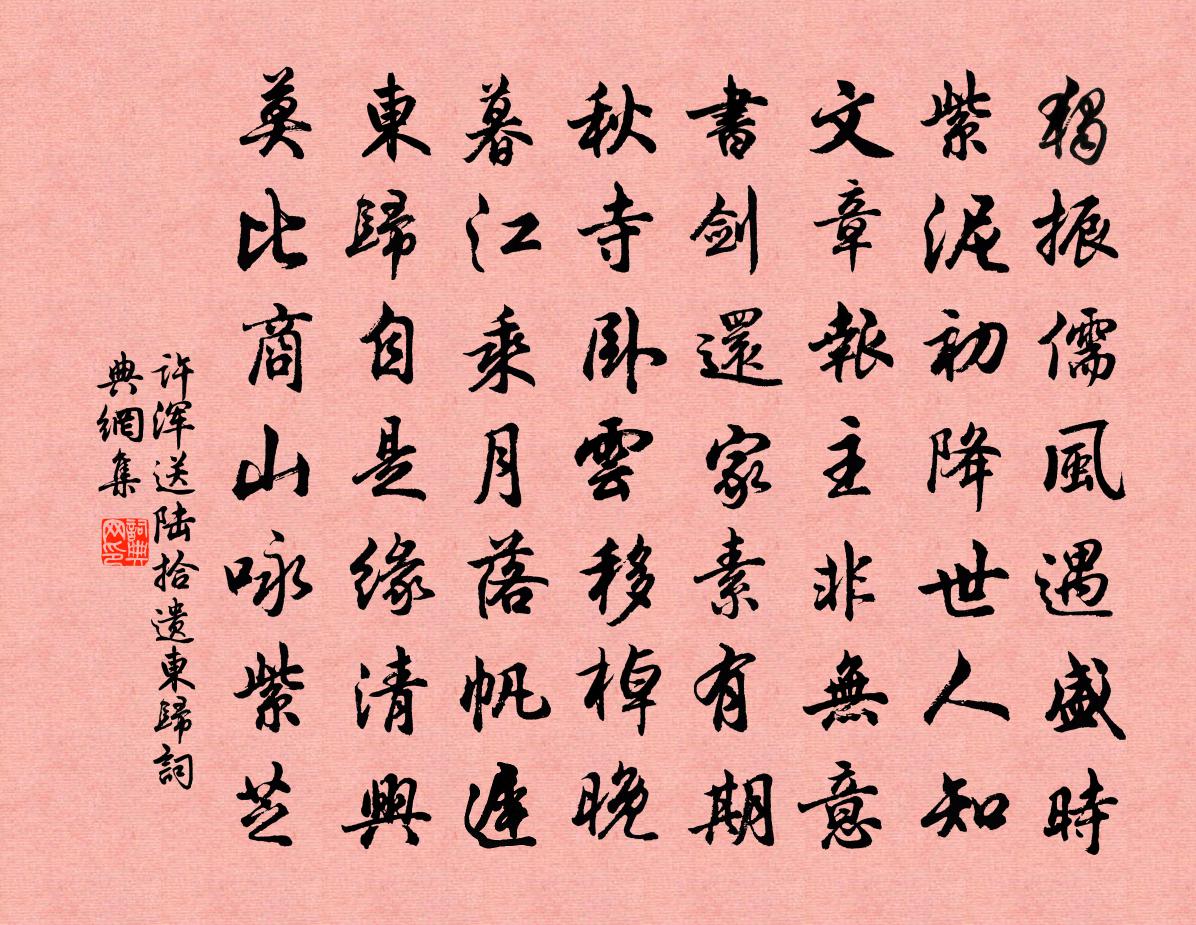 獨振儒風遇盛時
紫泥初降世人知
文章報主非無意
書劍還家素有期
秋寺臥雲移棹晚
暮江乘月落帆遲
東歸自是緣清興
莫比商山咏紫芝
许浑送陆拾遗東歸詞
典網集
詞典
网印